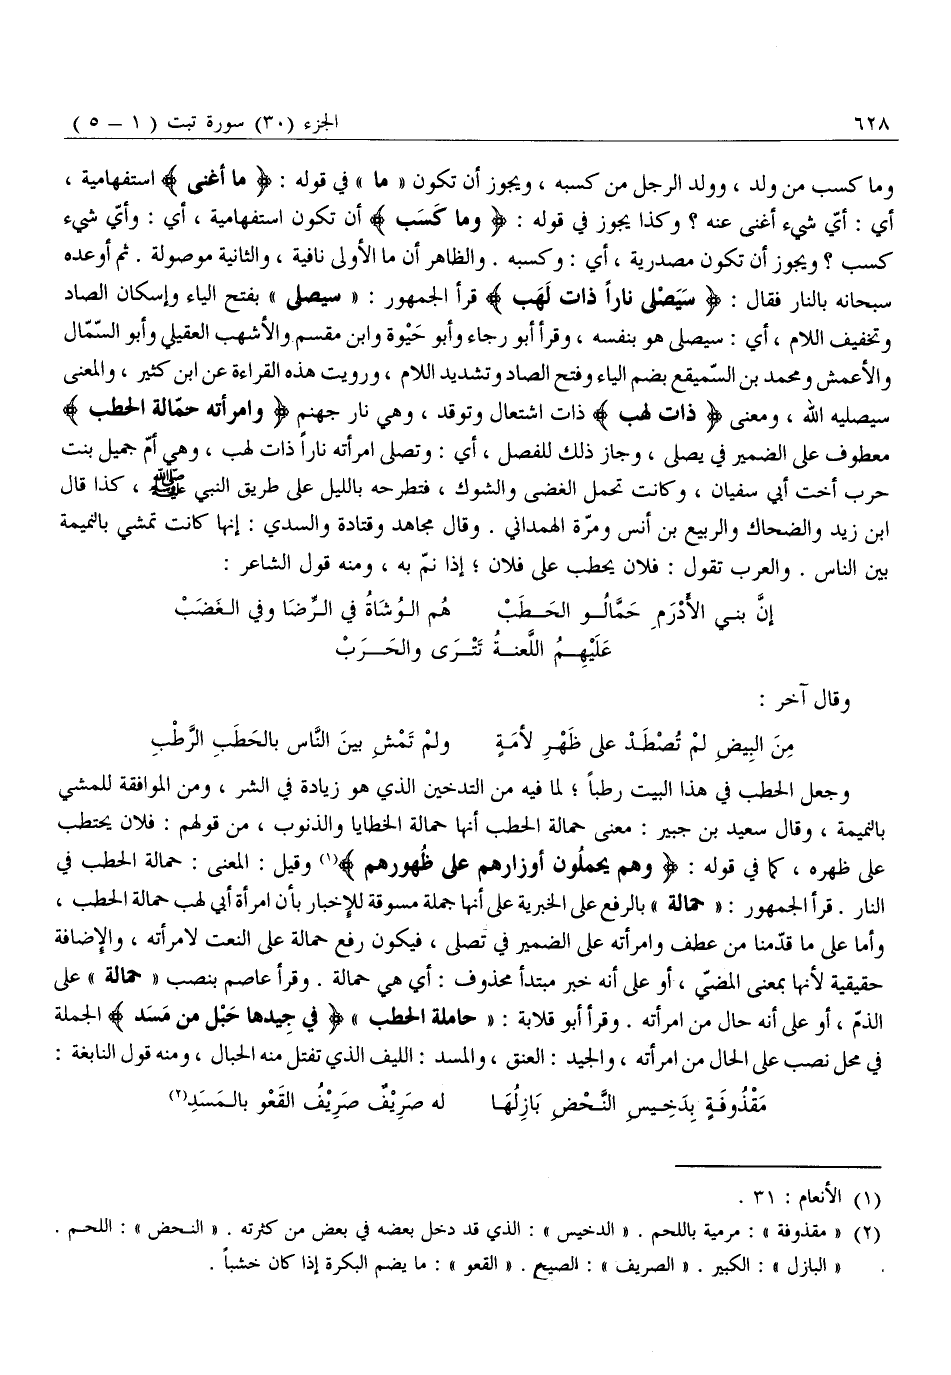 ٦٢٨ الجزء (٣٠) سورة تبت ( ١ – ٥ )
وما كسب من ولد ، وولد الرجل من كسبه ، ويجوز أن تكون « ما » في قوله : ﴿ ما أغنى ﴾ استفهامية ،
أي : أيّ شيء أغنى عنه ؟ وكذا يجوز في قوله : ﴿ وما كَسَب ﴾ أن تكون استفهامية ، أي : وأيّ شيء
كسب ؟ ويجوز أن تكون مصدرية ، أي : وكسبه . والظاهر أن ما الأولى نافية ، والثانية موصولة . ثم أوعده
سبحانه بالنار فقال : ﴿ سَيَصْلى ناراً ذات لَهَب ﴾ قرأ الجمهور : « سيصلى » بفتح الياء وإسكان الصاد
وتخفيف اللام ، أي : سيصلى هو بنفسه ، وقرأ أبو رجاء وأبو حَيْوة وابن مقسم والأشهب العقيلي وأبو السّمّال
والأعمش ومحمد بن السّميقع بضم الياء وفتح الصاد وتشديد اللام ، ورويت هذه القراءة عن ابن كثير ، والمعنى
سيصليه الله ، ومعنى ﴿ ذات لهب ﴾ ذات اشتعال وتوقد ، وهي نار جهنم ﴿ وامرأته حمّالة الحطب ﴾
معطوف على الضمير في يصلى ، وجاز ذلك للفصل ، أي : وتصلى امرأته ناراً ذات لهب ، وهي أمّ جميل بنت
حرب أخت أبي سفيان ، وكانت تحمل الغضى والشوك ، فتطرحه بالليل على طريق النبي ﷺ ، كذا قال
ابن زيد والضحاك والربيع بن أنس ومرّة الهمداني . وقال مجاهد وقتادة والسدي : إنها كانت تمشي بالنميمة
بين الناس . والعرب تقول : فلان يحطب على فلان ؛ إذا نمّ به ، ومنه قول الشاعر :
إنَّ بنـي الأَدْرَمِ حَمَّالُـو الحَـطَبْ هُم الـوُشَاةُ في الرِّضَا وفي الـغَضَبْ
عَلَيْهِـمُ اللَّعنـةُ تَتْـرَى والحَـرَبْ
وقال آخر :
مِنَ البِيضِ لمْ تُصْطَدْ على ظَهْرِ لأمَةٍ ولمْ تَمْشِ بينَ النَّاس بالحَطَبِ الرَّطْبِ
وجعل الحطب في هذا البيت رطباً ؛ لما فيه من التدخين الذي هو زيادة في الشر ، ومن الموافقة للمشي
بالنميمة ، وقال سعيد بن جبير : معنى حمالة الحطب أنها حمالة الخطايا والذنوب ، من قولهم : فلان يحتطب
على ظهره ، كما في قوله : ﴿ وهم يحملُون أوزارهم على ظُهورهم ﴾(١) وقيل : المعنى : حمالة الحطب في
النار . قرأ الجمهور : « حمالة » بالرفع على الخبرية على أنها جملة مسوقة للإخبار بأن امرأة أبي لهب حمالة الحطب ،
وأما على ما قدّمنا من عطف وامرأته على الضمير في تصلى ، فيكون رفع حمالة على النعت لامرأته ، والإضافة
حقيقية لأنها بمعنى المضيّ ، أو على أنه خبر مبتدأ محذوف : أي هي حمالة . وقرأ عاصم بنصب « حمالة » على
الذمّ ، أو على أنه حال من امرأته . وقرأ أبو قلابة : « حاملة الحطب » ﴿ في جِيدها حَبْل من مَسَد ﴾ الجملة
في محل نصب على الحال من امرأته ، والجيد : العنق ، والمسد : الليف الذي تفتل منه الحبال ، ومنه قول النابغة :
مَقْذُوفَةٍ بِدَخِيسِ النَّـحْضِ بَازِلُهَا له صَرِيْفٌ صَرِيْفُ القَعْو بالـمَسَدِ(٢)
(١) الأنعام : ٣١ .
(٢) « مقذوفة » : مرمية باللحم . « الدخيس » : الذي قد دخل بعضه في بعض من كثرته . « النـحض » : اللحـم .
« البازل » : الكبير . « الصريف » : الصيح . « القعو » : ما يضم البكرة إذا كان خشباً .